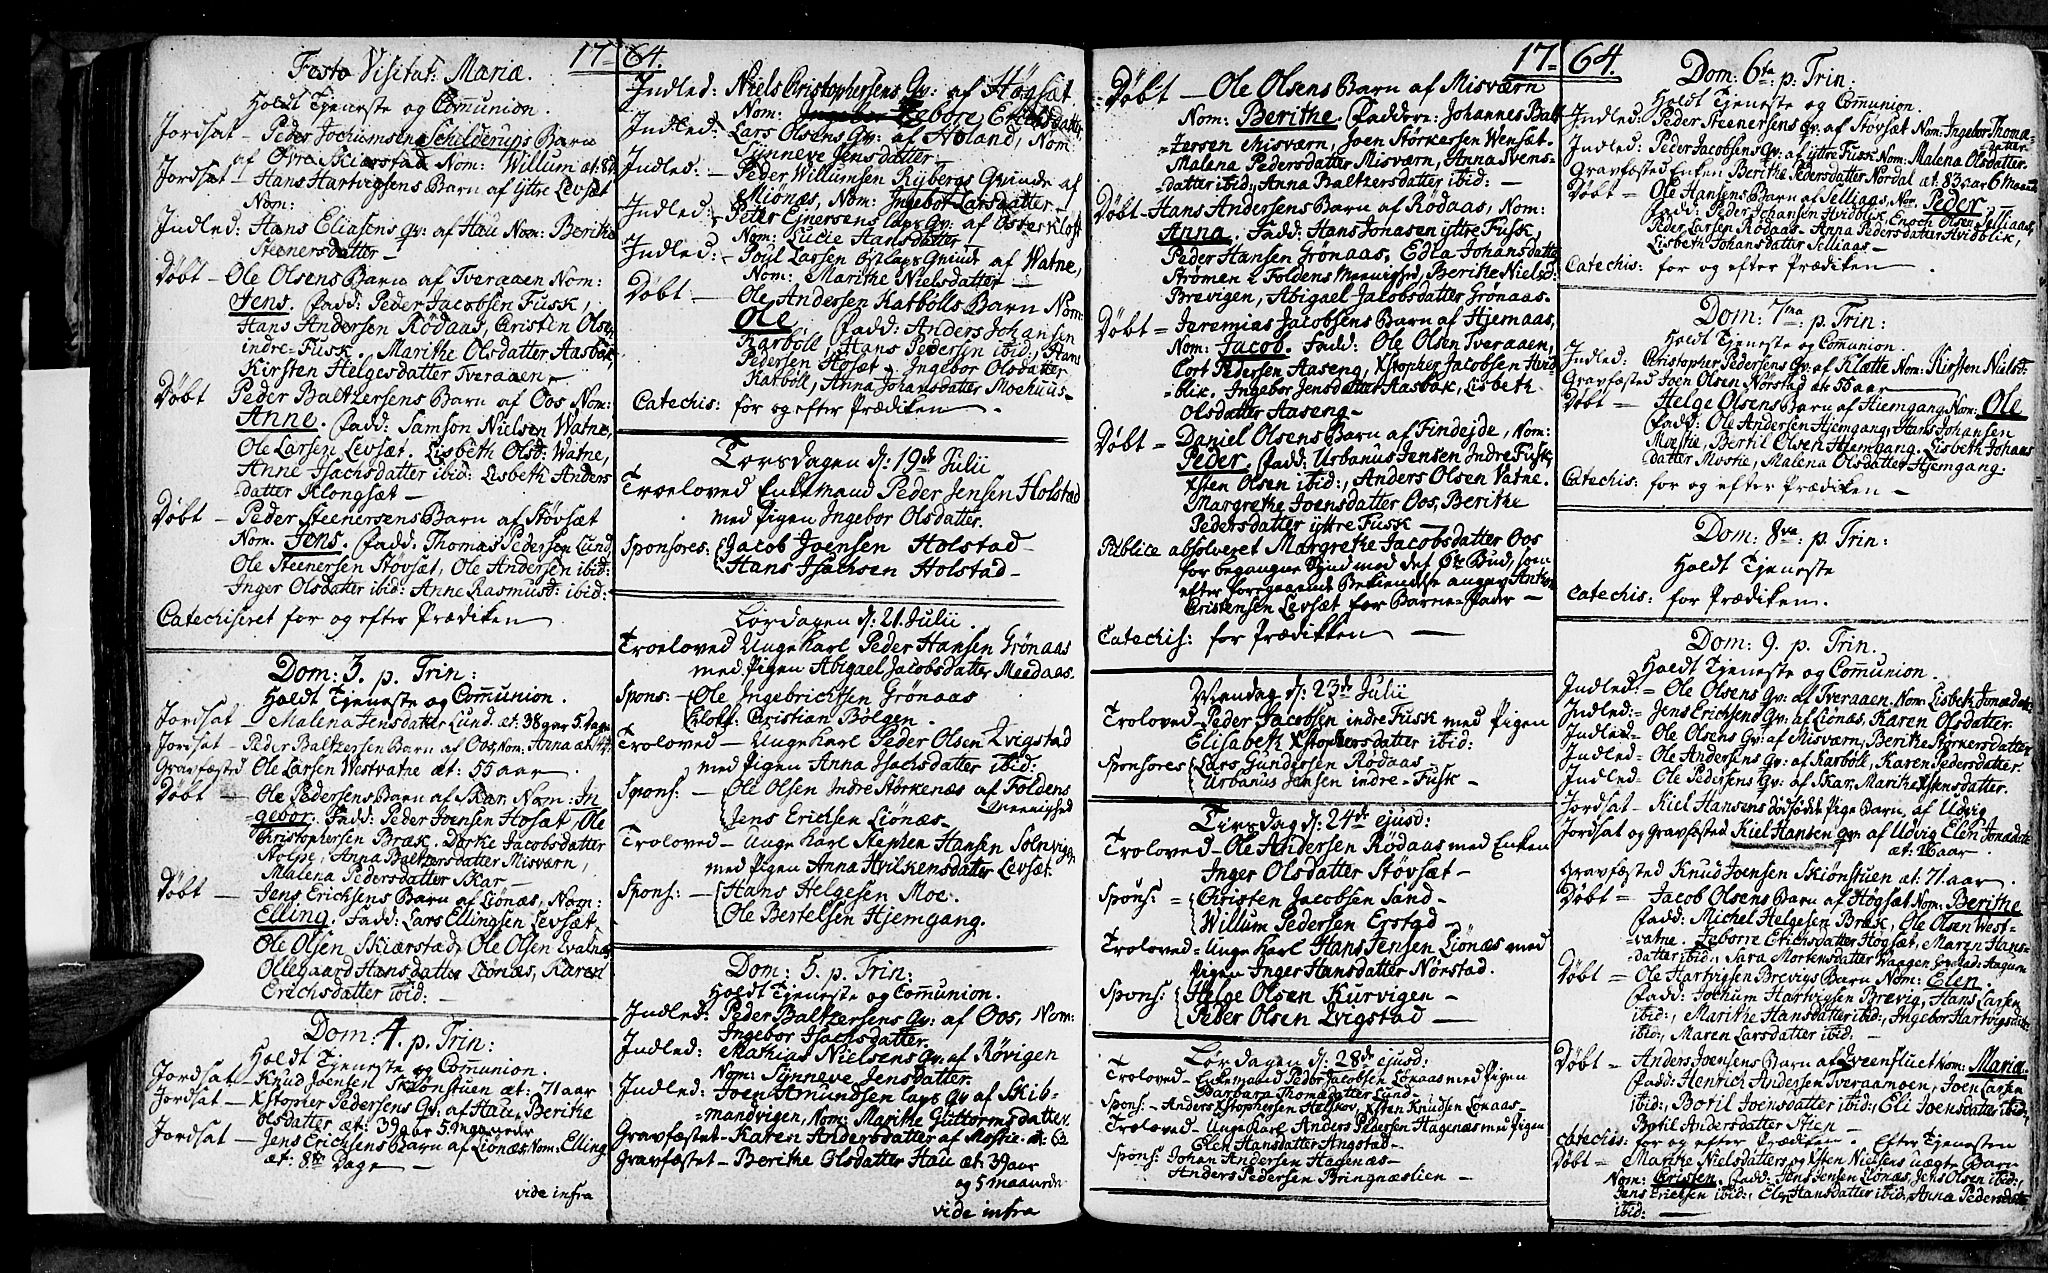 17=64.
Festo Visitat: Mariæ.
Holdt Tjeneste og Com̅union.
Jordsat – Peder Jochumsens Schilderups Barn
af Øvre Skierstad Nom: Willum æt: 8
Jordsat – Hans Hartvigsens Barn af ÿttre Levsæt
Nom:
Indled: Hans Eliasens Qv: af Hau Nom: Berithe
Steenersdatter –
Døbt – Ole Olsens Barn af Tveraaen Nom:
Jens. Fadd: Peder Jacobsen Fusk,
Hans Andersen Rödaas, Cristen Olsen
indre=Fusk. Marithe Olsdatter Aasbak,
Kirsten Helgesdatter Tveraaen –
Døbt Peder Baltzersens Barn af Oos Nom:
Anne. Fadd: Samson Nielsen Watne,
Ole Larsen Levsæt. Lisbeth Olsd: Watne,
Anne Isachsdatter ibid: Lisbeth Anders
datter Klongsæt –
Døbt – Peder Steenersens Barn af Støvsæt
Nom. Jens. Fadd: Thomas Pedersen Lund,
Ole Steenersen Støvsæt, Ole Andersen ibid:
Inger Olsdatter ibid: Anne Rasmusd: ibid:
Catechiseret for og efter Prædiken
Dom: 3. p. Trin:
Holdt Tjeneste og Com̅union.
Jordsat – Malena Jensdatter Lund. æt: 38 aar 5. dage
Jordsat – Peder Baltzersen Barn af Oos Nom: Anna æt:
Gravfæsted Ole Larsen Westvatne æt: 55 aar
Døbt – Ole Pedersens Barn af Skar Nom: In
=gebor. Fadd: Peder Joensen Hosæt, Ole
Christophersen Bræk, Dorthe Jacobsdatter
Anna Baltzersdatter Misværn,
Malena Pedersdatter Skar –
Døbt – Jens Erichsens Barn af Liönæs, Nom:
Elling. Fadd: Lars Ellingsen Levsæt,
Ole Olsen Skiærstad, Ole Olsen Ivatne
Ollegaard Hansdatter Liönæs, Karen
Erichsdatter ibid: –
Dom: 4. p. Trin:
Holdt Tjeneste og Com̅union.
Jordsat – Knud Joensen Skiönstuen æt: 71 aar
Jordsat – Xstopher Pedersens Qv: af Hau, Berithe
Olsdatter æt: 39 aar 5 maaneder
Jordsat – Jens Erichsens Barn af Liönæs Nom: Elling
æt: 8te Dage –
vide infra
Indled: Niels Cristophersens Qv: af Högsæt
Nom: Zebore Erichsdatter
Indled: Lars Olsens Qv: af Holand, Nom:
Sÿnneve Jensdatter –
Indled: – Peder Willumsen Rÿbergs Qvinde af
Miönæs, Nom: Ingebor Larsdatter
Indled: Peter Ejnersens laps Qv: af Österkloft
Nom: Lucie Hansdatter –
Indled: – Poul Larsen Østlaps Qvinde af Watne,
Nom: Marithe Nielsdatter –
Døbt – Ole Andersen Karbölls Barn Nom:
Ole, Fadd: Anders Johansen
Karböll, Hans Pedersen ibid: Hans
Pedersen Hosæt, Ingebor Olsdatter
Karböll, Anna Johansdatter Moehuus –
Catechis: for og efter Prædiken –
Torsdagen d: 19de Julii
Troeloved Enkemand Peder Jensen Holstad
med Pigen Ingebor Olsdatter.
Sponsores: Jacob Joensen Holstad –
Hans Isachsen Holstad –
Lørdagen d: 21. Julii.
Troeloved Unge Karl Peder Hansen Grönaas
med Pigen Abigael Jacobsdatter Meedaas.
Spons: – Ole Ingebrichtsen Grönaas
Klokk: Christian Bölgen.
Troloved – Unge Karl Peder Olsen Qvigstad
med Pigen Anna Isachsdatter ibid:
Spons: – Ole Olsen Indre Störkenæs af Foldens
Meenighed
Jens Erichsen Liönæs –
Troloved – Unge Karl Stephen Hansen Solvvigen
med Pigen Anna Hvilkensdatter Levsæt
Spons: – Hans Helgesen Moe.
Ole Bertelsen Hjemgang.
Dom: 5. p. Trin:
Holdt Tjeneste og Com̅union.
Indled: Peder Baltzersens Qv: af Oos, Nom:
Ingebor Isachsdatter.
Indled: Mathias Nielsens Qv: af Rövigen
Nom: Sÿnneve Jensdatter.
Indled: Joen Amundsen laps Qv af Skib=
mandvigen, Nom: Marithe Guttormsdatter.
Gravfæstet – Karen Andersdatter af Mostie æt: 62
Gravfæstet – Berithe Olsdatter Hau æt: 39 aar
og 5 maaneder
vide infra
17=64.
Døbt – Ole Olsens Barn af Misværn
Nom: Berithe. Faddere: Johannes Balt
=zersen Misværn, Joen Störkersen Wensæt.
Malena Pedersdatter Misværn, Anna Svens-
=datter ibid: Anna Baltzersdatter ibid: –
Døbt – Hans Andersens Barn af Rödaas, Nom:
Anna. Fadd: Hans Jonasen ÿttre Fusk,
Peder Hansen Grönaas, Edla Johansdatter
Strömen i Foldens Meenighed, Berithe Nielsd:
Brevigen, Abigael Jacobsdatter Grönaas.
Døbt = Jeremias Jacobsens Barn af Hjemaas,
Nom: Jacob. Fadd: Ole Olsen Tveraaen,
Cort Pedersen Aaseng, Xstopher Jacobsen Hvid
=blik. Ingebor Jensdatter Aasbak, Lisbeth
Olsdatter Aaseng –
Døbt = Daniel Olsens Barn af Findejde, Nom:
Peder. Fadd: Urbanus Jensen Indre Fusk,
Xsten Olsen ibid:, Anders Olsen Vatne.
Margrethe Joensdatter Oos, Berithe
Pedersdatter ÿttre Fusk –
Publice absolveret Margrethe Jacobsdatter Oos
for begangne Synd mod det 6te Bud, som
efter foregaaende Bekiendelse angav Anton
Cristensen Levsæt for Barne=Fader –
Catechis: for Prædikken –
Mandag d: 23de Julii
Troloved Peder Jacobsen indre Fusk med Pigen
Elisabeth Xstophersdatter ibid:
Sponsores Lars Gundersen Rödaas
Urbanus Jensen indre=Fusk –
Tirsdag d: 24de ejusd:
Troloved Ole Andersen Rödaas med Enken
Inger Olsdatter Støvsæt –
Spöns: = Christen Jacobsen Sand –
Willum Pedersen Erstad –
Troloved = Unge Karl Hans Jensen Liönæs med
Pigen Inger Hansdatter Nörstad.
Spöns: Helge Olsen Kurvigen –
Peder Olsen Qvigstad –
Lørdagen d: 28de ejusd:
Troloved – Enkemand Peder Jacobsen Lönaas med Pigen
Barbara Thomædatter Lund –
Spons: – Anders Xstophersen Hellskov, Xsten Knudsen Lönaas –
Troloved – Unge Karl Anders Pedersen Hagenæs med Pigen
Elen Hansdatter Angstad –
Spöns: Johan Andersen Hagenæs –
Anders Pedersen Bringnæslien –
Dom: 6ta p: Trin:
Holdt Tjeneste og Com̅union.
Indled: Peder Steenersens Qv: af Støvsæt Nom: Ingebor Thomæ=
=datter
Indled: Peder Jacobsens Qv: af ÿttre Fusk Nom: Malena Olsdatter.
Gravfæsted Enken Berithe Pedersdatter Nordal æt: 83 aar 6 Maaned
Døbt = Ole Hansens Barn af Selliaas, Nom: Peder.
Fadd: Peder Johansen Hvidblik, Enoch Olsen Selliaas,
Peder Larsen Rödaas. Anna Pedersdatter Hvidblik,
Lisbeth Johansdatter Selliaas –
Catechis: for og efter Prædiken.
Dom: 7ma: p. Trin:
Holdt Tjeneste og Com̅union.
Indled: Cristopher Pedersens Qv: af Klætte Nom: Kirsten Nielsd:
Gravfæsted Joen Olsen Nörstad æt: 56 aar
Døbt = Helge Olsens Barn af Hjemgang Nom: Ole
Fadd: Ole Andersen Hjemgang, Hans Johansen
Mostie, Bertil Olsen Hjemgang. Lisbeth Johans
datter Mostie, Malena Olsdatter Hjemgang:
Catechis: for og efter Prædiken –
Dom: 8va: p. Trin:
Holdt Tjeneste
Catechis: for Prædiken.
Dom: 9. p. Trin.
Holdt Tjeneste og Com̅union.
Indled: = Ole Olsens Qv: af Tveraaen, Nom: Lisbeth Jonædatter
Indled: = Jens Erichsens Qv: af Liönæs, Karen Olsdatter.
Indled = Ole Olsens Qv: af Misværn, Berithe Störkersdatter
Indled: = Ole Andersens Qv: af Karböl, Karen Pedersdatter.
Indled: = Ole Pedersens Qv: af Skar, Marithe Xstensdatter.
Jordsat – Kiel Hansens dödfödte Pige Barn, af Udvig
Jordsat og Gravfæsted Kiel Hansen Qv: af Udvig Elen Jonædatter
æt: 26 aar
Gravfæsted Knud Joensen Skiönstuen æt: 71 aar.
Døbt = Jacob Olsens Barn af Högsæt Nom: Berithe
Fadd: Michel Helgesen Bræk, Ole Olsen West=
=vatne. Zeborre Erichsdatter Högsæt, Maren Hans=
datter ibid:, Sara Mortensdatter Waagen
Døbt = Ole Hartvigsen Brevigs Barn Nom: Elen.
Fadd: Jochum Hartvigsen Brevig, Hans Larsen
ibid:, Marithe Hansdatter ibid:, Ingebor Hartvigsdatter
ibid:, Maren Larsdatter ibid: –
Døbt = Anders Joensens Barn af Eveenfluet Nom: Mariæ.
Fadd: Henrich Andersen Tveraamoen, Joen Larsen
ibid:, Boril Joensdatter ibid:, Eli Joensdatter ibid,
Botil Andersdatter Stien –
Catechis: for og efter Prædiken. Efter Tjenesten
Døbt = Marithe Nielsdatters og Xsten Nielsens uægte Barn
Nom: Cristen. Fadd: Jens Jensen Liönæs, Jens Olsen ibid:,
Jens Erichsen ibid:, Elen Hansdatter ibid:, Anna Pedersdatter
ibid: –